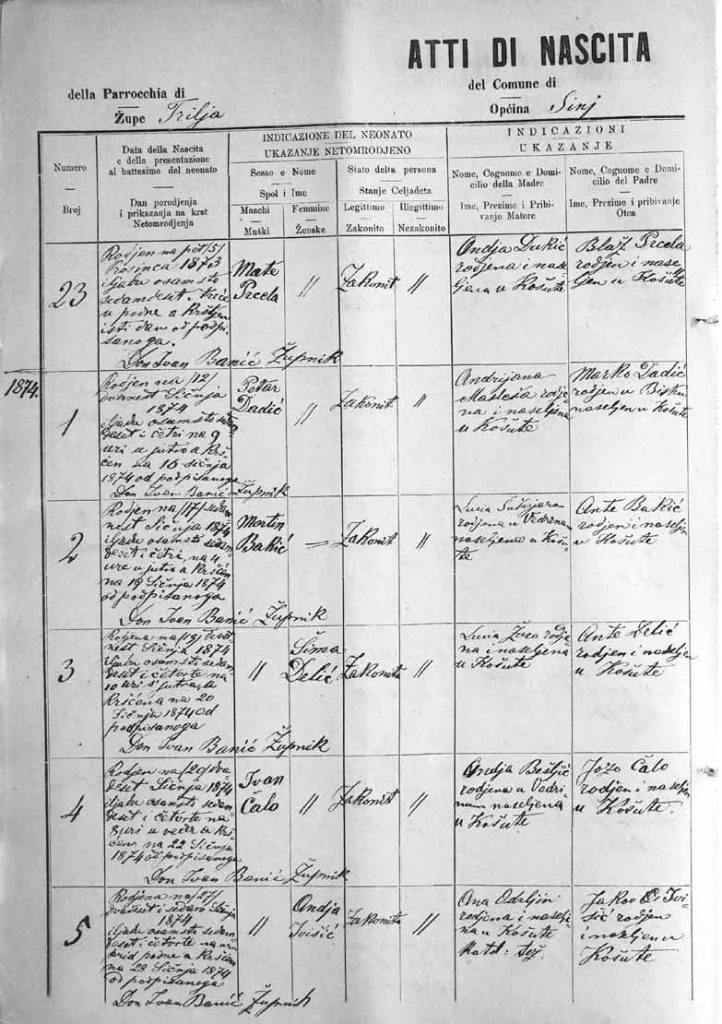 ATTI DI NASCITA
della Parrocchia di
Župe Trilja
del Comune di
Općina Sinj
Numero
Broj
Data della Nascita
e della presentazione
al battesimo del neonato
Dan porodjenja
i prikazanja na krst
Netomrodjenja
INDICAZIONE DEL NEONATO
UKAZANJE NETOMRODJENO
Sesso e Nome
Spol i Ime
Maschi
Muški
Femmine
Ženske
Stato della persona
Stanje Celjadeta
Legittimo
Zakonito
Illegittimo
Nezakonito
INDICAZIONI
UKAZANJE
Nome, Cognome e Domi-
cilio della Madre
Ime, Prezime i Pribi-
vanje Matere
Nome, Cognome e Domi-
cilio del Padre
Ime, Prezime i pribivanje
Otca
23
Rodjen na pet /5/
Prosinca 1873
iljadu osamsto
sedamdeset i treće
u podne a Kršćen
isti dan od podpi-
sanoga.
Don Ivan Banić Župnik
Mate
Prcela
//
Zakonit
//
Andja Dukić
rodjena i nase-
ljena u Košute
Blaž Prcela
rodjen i nase-
ljen u Košute
1874.
1
Rodjen na /12/
dvanest Sičnja
1874
iljadu osamsto sedam
deset i četri na 9
uri u jutro a Kr-
šćen na 16 sičnja
1874 od podpisanoga
Don Ivan Banić Župnik
Petar
Dadić
//
Zakonit
//
Andrijana
Masteša rodje
na i naseljena
u Košute
Marko Dadić
rodjen u Bisku
naseljen u Košute
2
Rodjen na /17/ sedam
nest Sičnja 1874
iljadu osamsto sedam
deset i četri, na 4
ure u jutro a Kršćen
na 19 Sičnja 1874
od podpisanoga
Don Ivan Banić Župnik
Martin
Bakić
Zakonit
//
Lucia
rodjena u Vedrena
naseljena u Košu-
te
Ante Bakić
rodjen i naseljen
u Košute
3
Rodjena na /19/ devet
nest Sičnja 1874
iljadu osamsto sedam
deset i četvrte na
10 uri s' jutra a
Kršćena na 20
Sičnja 1874 od
podpisanoga
Don Ivan Banić Župnik
//
Šima
Delić
Zakonita
//
Lucia rodje
na i naseljena
u Košute
Ante Delić
rodjen i naseljen
u Košute
4
Rodjen na /20/ dva
deset Sičnja 1874
iljadu osamsto sedam
deset i četvrte na
8 uri u večer a Kr-
šćen na 22 Sičnja
1874 od podpisanoga
Don Ivan Banić Župnik
Ivan
Čalo
//
Zakonit
//
Andja
rodjena u Vedri
naseljena
u Košute
Jozo Čalo
rodjen i naseljen
u Košute.
5
Rodjena na /27/
dvadeset i sedam Sičnja
1874
iljadu osamsto sedam
deset i četvrte na
prid podne a Kršćena
na 28 Sičnja 1874
od podpisanoga
Don Ivan Banić Župnik
//
Andja
Ivišić
Zakonita
//
Ana Odrljin
rodjena i nase-
na u Košute
Jakov Ivi
šić rodjen
i naseljen u
Košute